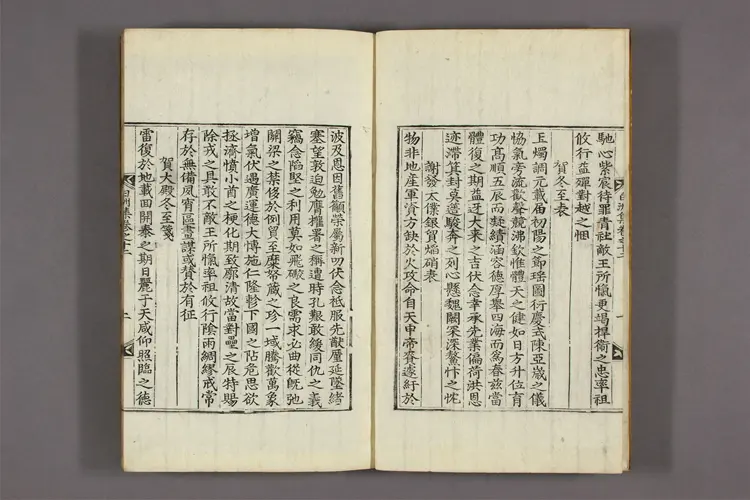 馳心紫宸待罪青社敵王所愾更竭捍衛之忠率祖
攸行益殫對越之悃
賀冬至表
玉燭調元載届初陽之節瑶圖衍慶式陳亞歲之儀
恊氣旁流歡聲競沸欽惟體天之健如日方升位育
功高順五辰而凝績涵容德厚舉四海而爲春玆當
體復之期益迓大來之吉伏念幸承先業偏荷洪恩
迹滯箕封莫逐駿奔之列心懸魏闕冞深鰲忭之忱
謝發太僕銀貿焔硝表
物非地産軍資方缺於火攻命自天申帝賚遽紆於
波及恩因舊顧榮屬新叨伏念祗服先猷廑延墜緒
塞望敦迫勉膺推署之稱遭時孔艱敢緩同仇之義
竊念陷堅之利用莫如飛礮之良需求必曲從旣弛
關梁之禁侈於例貿至糜帑藏之珍一域騰歡萬象
增氣伏遇廣運德大博施仁隆軫下國之阽危思欲
拯濟憤小酋之梗化期致廓清故當對壘之辰特賜
除戎之具敢不敵王所愾率祖攸行陰雨綢繆戒常
存於無備風宵區畫謀或贊於有征
賀大殿冬至箋
雷復於地載回開泰之期日麗于天咸仰照臨之德
白洲集卷之十二
一
二